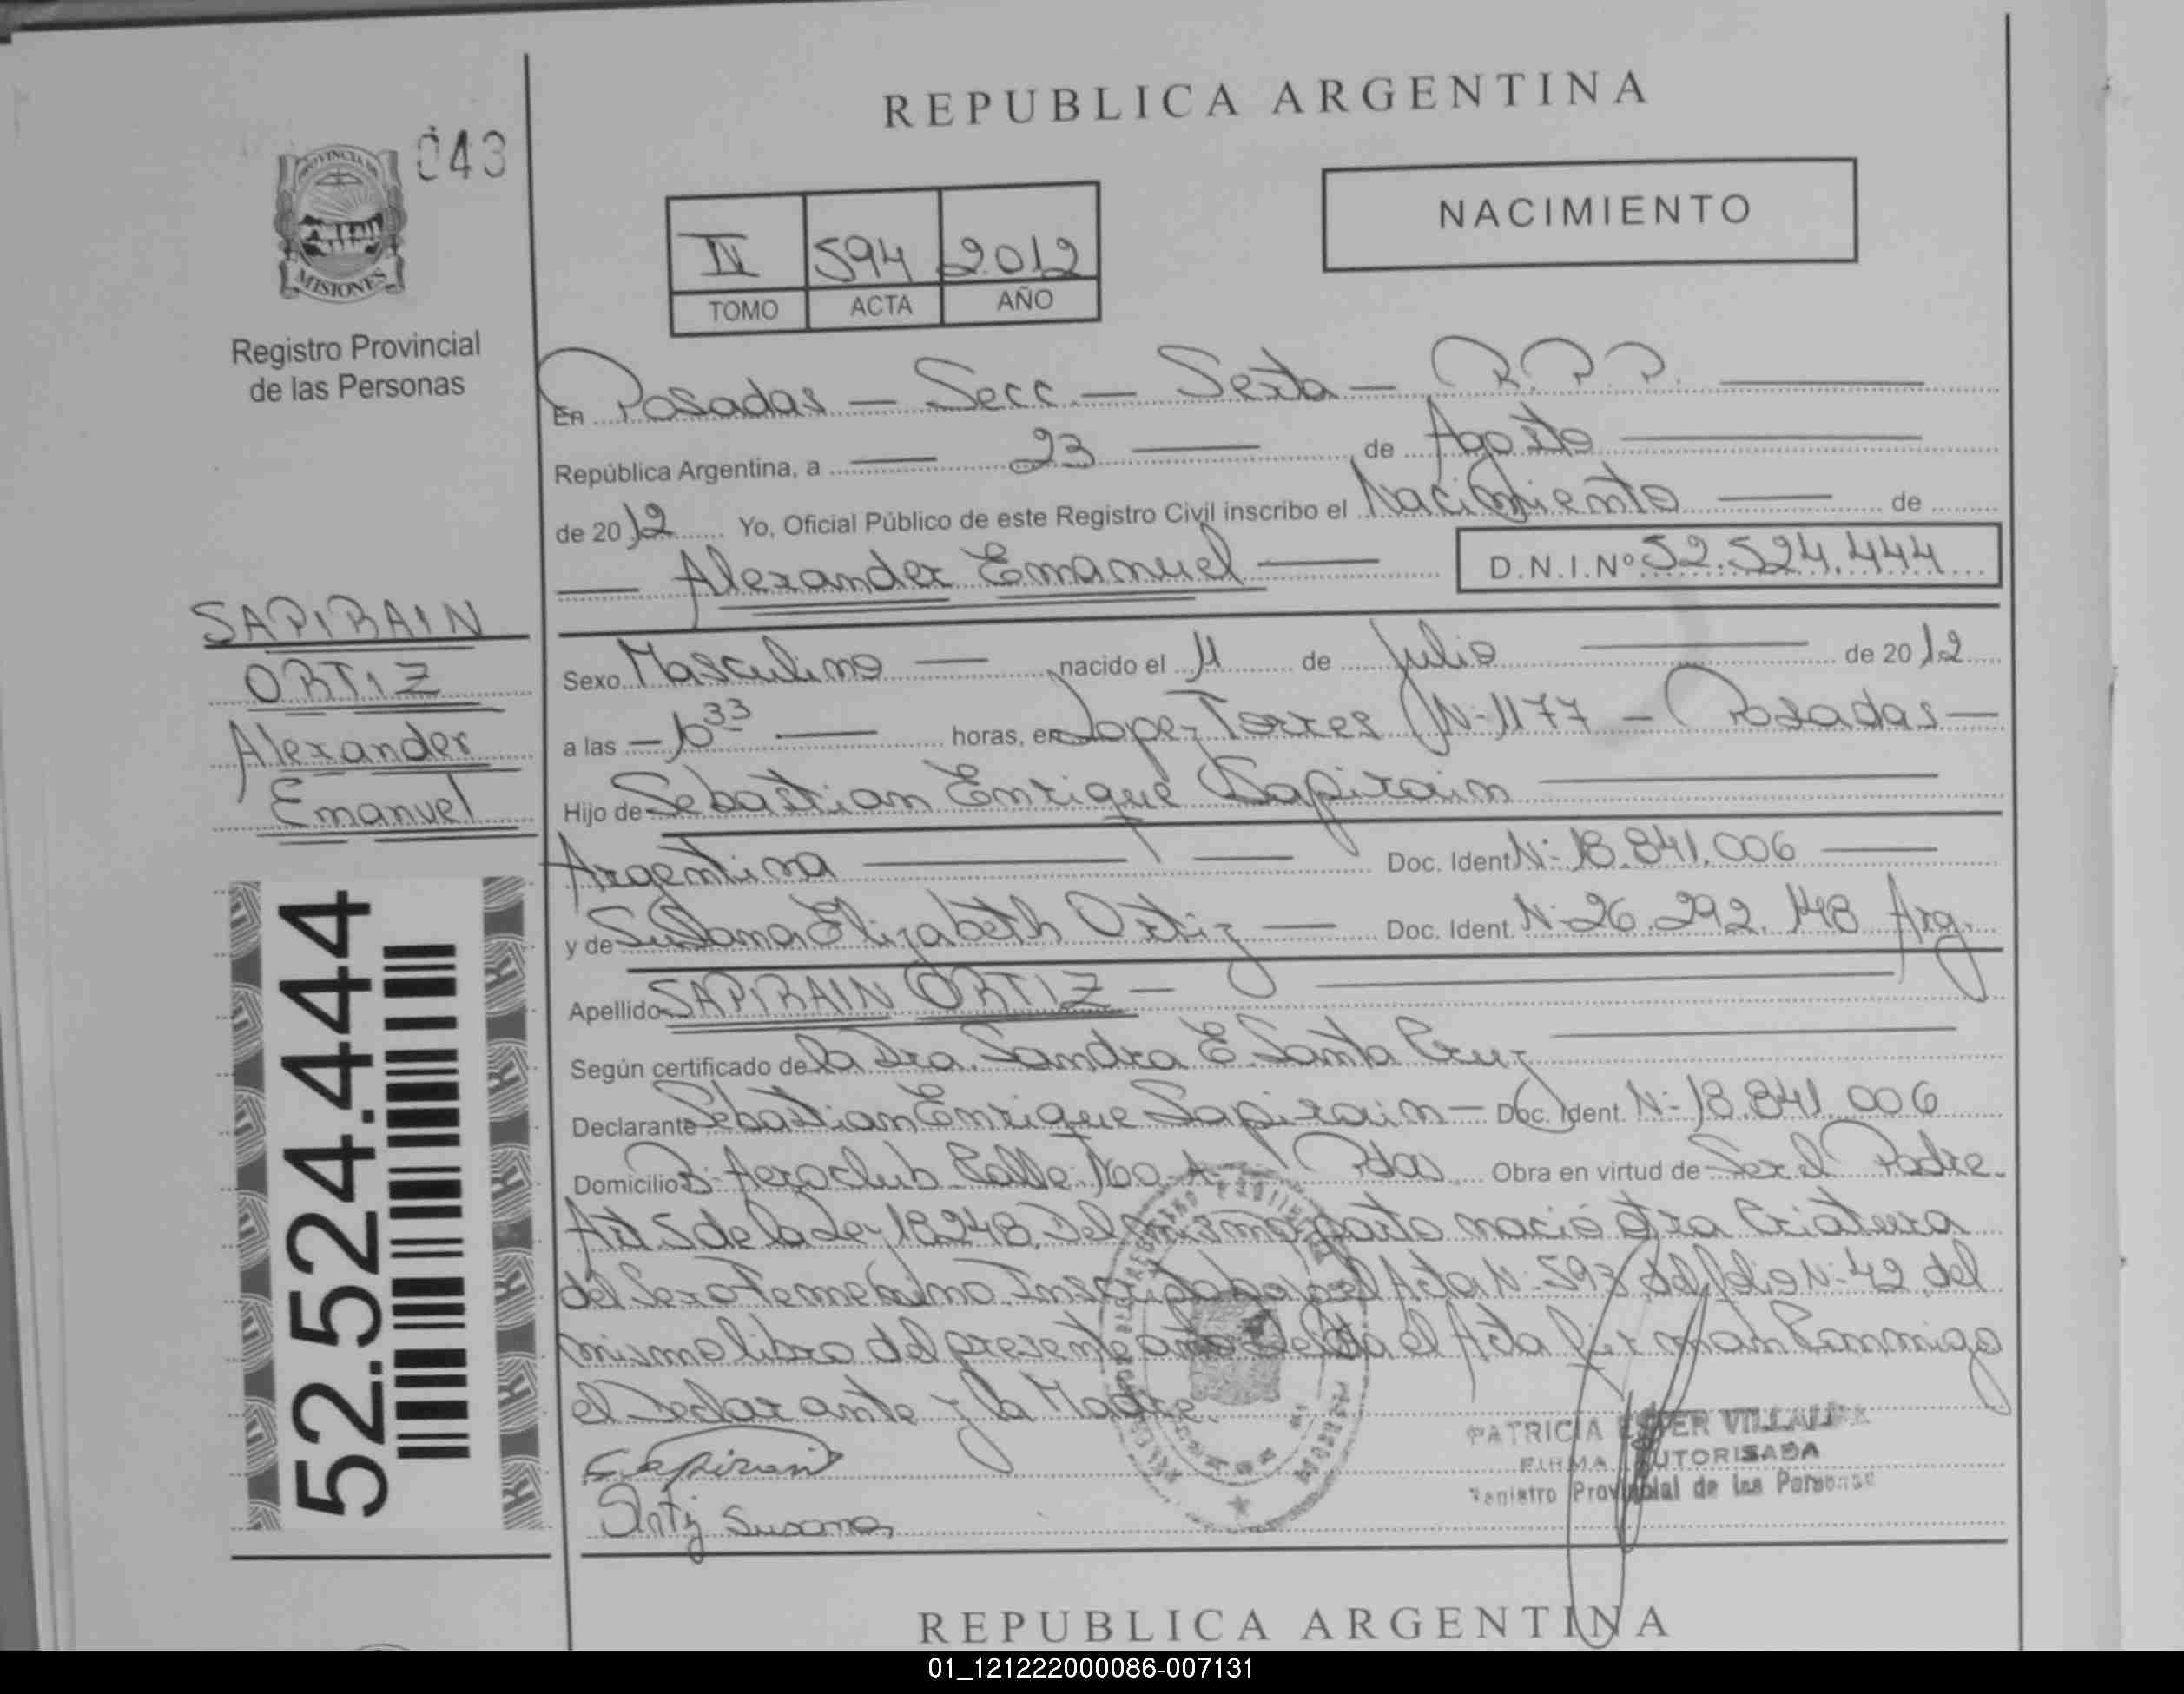 REPUBLICA ARGENTINA
043
PROVINCIA DE
MISIONES
Registro Provincial
de las Personas
NACIMIENTO
IV 594 2012
TOMO ACTA AÑO
En Posadas — Secc. — Sexta — R.P.P. —
República Argentina, a — 23 — de Agosto —
de 2012 Yo, Oficial Público de este Registro Civil inscribo el Nacimiento — de
— Alexander Emanuel — D.N.I.Nº 52.524.444
SAPIRAIN
ORTIZ
Alexander
Emanuel
Sexo Masculino — nacido el 11 de Julio — de 2012
a las — horas, en Lopez Torres Nº 1177 — Posadas —
Hijo de Sebastian Enrique Sapirain —
Argentina — Doc. Ident Nº 18.841.006 —
y de Susana Elizabeth Ortiz — Doc. Ident. Nº 26.292.148 Arg.
Apellido SAPIRAIN ORTIZ —
Según certificado de la Dra. Sandra E. Santa Cruz —
Declarante Sebastian Enrique Sapirain — Doc. Ident. Nº 18.841.006
Domicilio Bº Aeroclub Calle Pdas. Obra en virtud de Ser el Padre.
Art 5 de la Ley 18248. Del mismo parto nació otra Criatura
del Sexo Femenino Inscripta bajo el Acta Nº 593 del folio Nº 42, del
mismo libro del presente año Leída el Acta firman Conmigo
el Declarante y la Madre.
52.524.444
Sapirain
Ortiz Susana
PATRICIA ESTER VILLALBA
FIRMA AUTORISADA
Registro Provincial de las Personas
REPUBLICA ARGENTINA
01_121222000086-007131